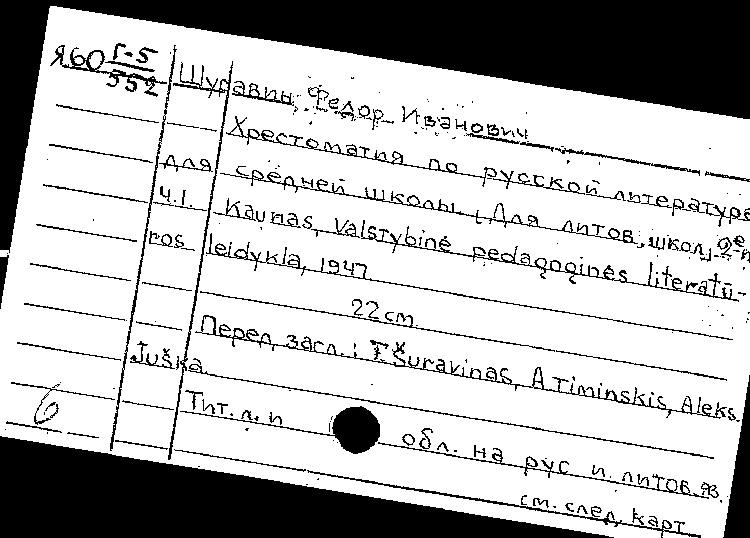 Я60 Г-5
552
Шуравин, Федор Иванович
Хрестоматия по русской литературе
для средней школы. [Для литов. школ]. 2е
Ч.I. Kaunas, Valstybinė pedagoginės literatū-
ros leidykla, 1947
22 cm
Перед засл.: F Šuravinas, A. Timinskis, Aleks.
Juška.
Тит. л. и обл. на рус и литов. яз.
см. след. карт
6